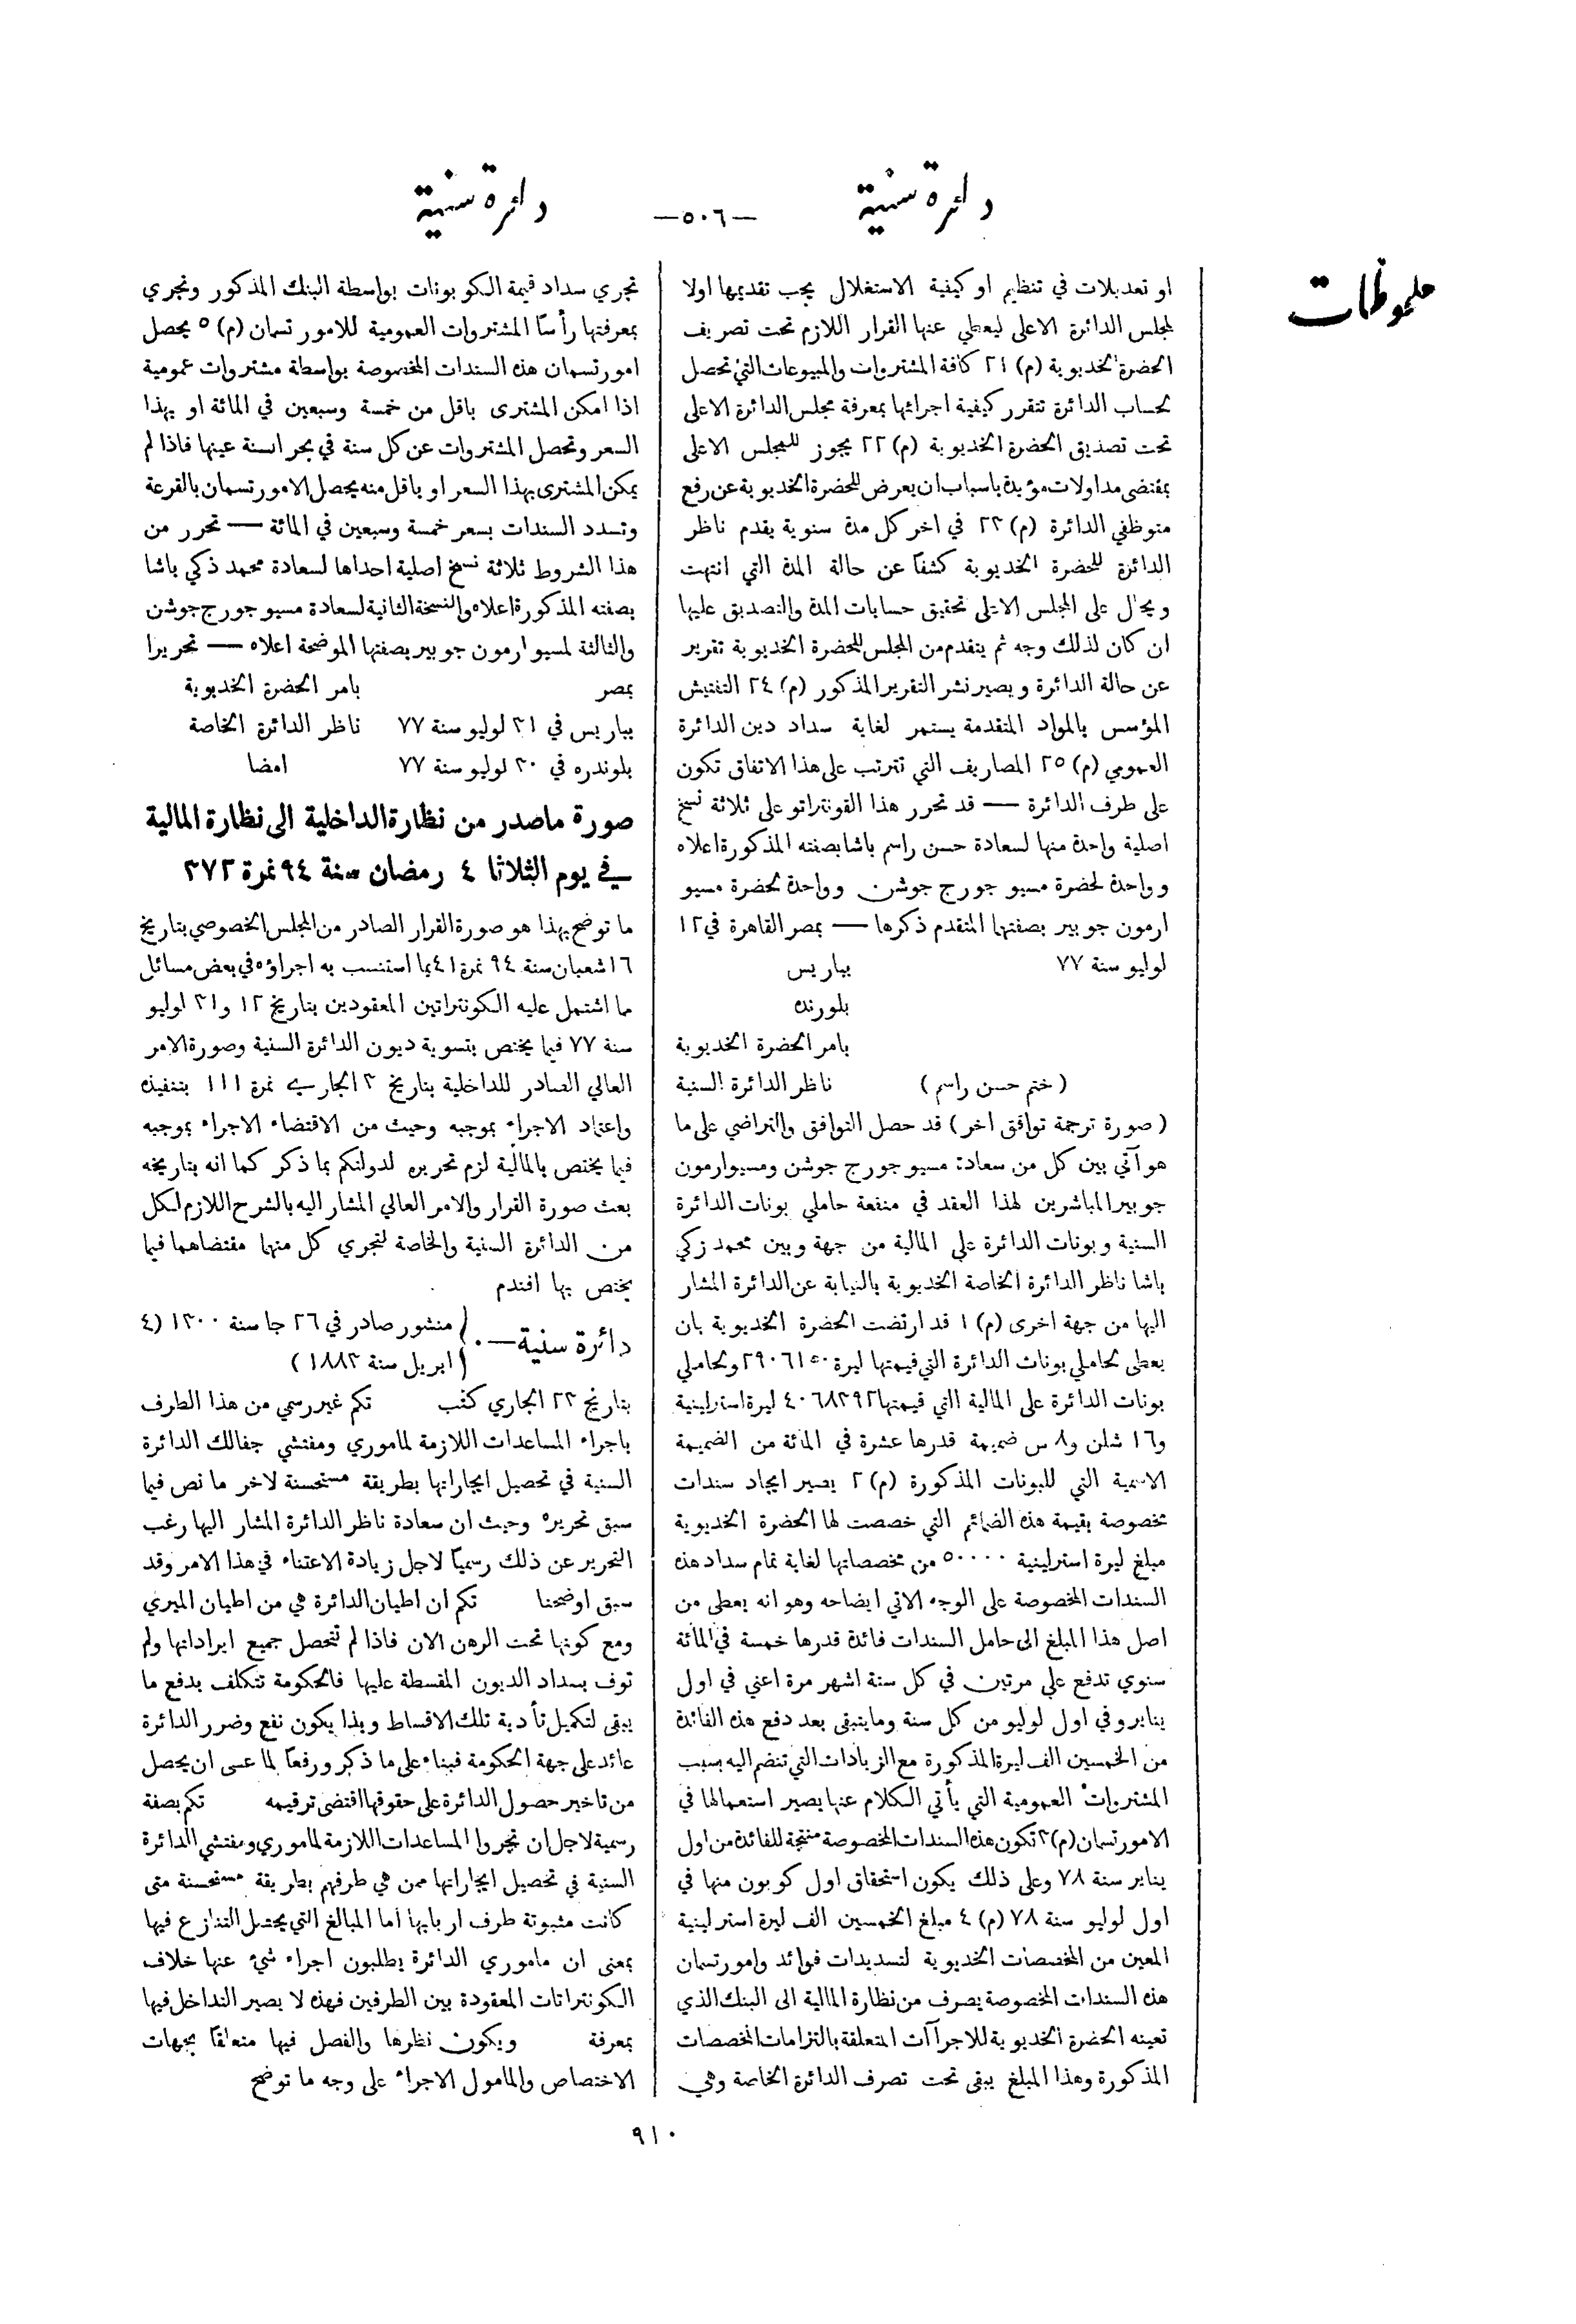 دائرة سنية
—٥٠٦—
دائرة سنية
ملحوظات
او تعديلات في تنظيم او كيفية الاستغلال يجب تقديمها اولا
لمجلس الدائرة الاعلى ليعطي عنها القرار اللازم تحت تصريف
الحضرة الخديوية (م) ٢١ كافة المشتروات والمبيوعات التي تحصل
لحساب الدائرة تتقرر كيفية اجرائها بمعرفة مجلس الدائرة الاعلى
تحت تصديق الحضرة الخديوية (م) ٢٢ يجوز للمجلس الاعلى
بمقتضى مداولات مؤيدة باسباب ان يعرض للحضرة الخديوية عن رفع
متوظفي الدائرة (م) ٢٣ في اخر كل مدة سنوية يقدم ناظر
الدائرة للحضرة الخديوية كشفاً عن حالة المدة التي انتهت
ويحال على المجلس الاعلى تحقيق حسابات المدة والتصديق عليها
ان كان لذلك وجه ثم يتقدم من المجلس للحضرة الخديوية تقرير
عن حالة الدائرة ويصير نشر التقرير المذكور (م) ٢٤ التفتيش
المؤسس بالمواد المتقدمة يستمر لغاية سداد دين الدائرة
العمومي (م) ٢٥ المصاريف التي تترتب على هذا الاتفاق تكون
على طرف الدائرة — قد تحرر هذا القونتراتو على ثلاثة نسخ
اصلية واحدة منها لسعادة حسن راسم باشا بصفته المذكورة اعلاه
وواحدة لحضرة مسيو جورج جوشن وواحدة لحضرة مسيو
ارمون جوبير بصفتها المتقدم ذكرها — بمصر القاهرة في ١٢
لوليو سنة ٧٧ بباريس
بلورنده
بامر الحضرة الخديوية
(ختم حسن راسم) ناظر الدائرة السنية
(صورة ترجمة توافق اخر) قد حصل التوافق والتراضي على ما
هو آتي بين كل من سعادة مسيو جورج جوشن ومسيو ارمون
جوبير المباشرين لهذا العقد في منفعة حاملي بونات الدائرة
السنية وبونات الدائرة على المالية من جهة وبين محمد زكي
باشا ناظر الدائرة الخاصة الخديوية بالنيابة عن الدائرة المشار
اليها من جهة اخرى (م) ١ قد ارتضت الحضرة الخديوية بان
يعطى لحاملي بونات الدائرة التي قيمتها ليرة ٢٩٠٦١٥٠ ولحاملي
بونات الدائرة على المالية التي قيمتها ٤٠٦٨٣٩٢ ليرة استرلينية
و١٦ شلن و٨ س ضميمة قدرها عشرة في المائة من الضميمة
الاسمية التي للبونات المذكورة (م) ٢ يصير ايجاد سندات
مخصوصة بقيمة هذه الضمائم التي خصصت لها الحضرة الخديوية
مبلغ ليرة استرلينية ٥٠٠٠٠ من مخصصاتها لغاية تمام سداد هذه
السندات المخصوصة على الوجه الاتي ايضاحه وهو انه يعطى من
اصل هذا المبلغ الى حامل السندات فائدة قدرها خمسة في المائة
سنوي تدفع على مرتين في كل سنة اشهر مرة اعني في اول
يناير وفي اول لوليو من كل سنة وما يتبقى بعد دفع هذه الفائدة
من الخمسين الف ليرة المذكورة مع الزيادات التي تنضم اليه بسبب
المشتروات العمومية التي يأتي الكلام عنها يصير استعمالها في
الامورتسمان (م) ٣ تكون هذه السندات المخصوصة منتجة للفائدة من اول
يناير سنة ٧٨ وعلى ذلك يكون استحقاق اول كوبون منها في
اول لوليو سنة ٧٨ (م) ٤ مبلغ الخمسين الف ليرة استرلينية
المعين من المخصصات الخديوية لتسديدات فوائد وامورتسمان
هذه السندات المخصوصة يصرف من نظارة المالية الى البنك الذي
تعينه الحضرة الخديوية للاجراآت المتعلقة بالتزامات المخصصات
المذكورة وهذا المبلغ يبقى تحت تصرف الدائرة الخاصة وهي
تجري سداد قيمة الكوبونات بواسطة البنك المذكور وتجري
بمعرفتها رأساً المشتروات العمومية للامورتسمان (م) ٥ يحصل
امورتسمان هذه السندات المخصوصة بواسطة مشتروات عمومية
اذا امكن المشترى باقل من خمسة وسبعين في المائة او بهذا
السعر وتحصل المشتروات عن كل سنة في بحر السنة عينها فاذا لم
يمكن المشترى بهذا السعر او باقل منه يحصل الامورتسمان بالقرعة
وتسدد السندات بسعر خمسة وسبعين في المائة — تحرر من
هذا الشروط ثلاثة نسخ اصلية احداها لسعادة محمد ذكي باشا
بصفته المذكورة اعلاه والنسخة الثانية لسعادة مسيو جورج جوشن
والثالثة لمسيو ارمون جوبير بصفتها الموضحة اعلاه — تحريرا
بمصر بامر الحضرة الخديوية
بباريس في ٣١ لوليو سنة ٧٧ ناظر الدائرة الخاصة
بلوندره في ٣٠ لوليو سنة ٧٧ امضا
صورة ماصدر من نظارة الداخلية الى نظارة المالية
في يوم الثلاثا ٤ رمضان سنة ٩٤ نمرة ٣٧٢
ما توضح بهذا هو صورة القرار الصادر من المجلس الخصوصي بتاريخ
١٦ شعبان سنة ٩٤ نمرة ٤١ بما استنسب به اجراؤه في بعض مسائل
مما اشتمل عليه الكونتراتين المعقودين بتاريخ ١٢ و٣١ لوليو
سنة ٧٧ فيما يختص بتسوية ديون الدائرة السنية وصورة الامر
العالي الصادر للداخلية بتاريخ ٣ الجاري نمرة ١١١ بتنفيذه
واعتماد الاجراء بموجبه وحيث من الاقتضاء الاجراء بموجبه
فيما يختص بالمالية لزم تحريره لدولتكم بما ذكر كما انه بتاريخه
بعث صورة القرار والامر العالي المشار اليه بالشرح اللازم لكل
من الدائرة السنية والخاصة لتجري كل منهما مقتضاهما فيما
يختص بها افندم
دائرة سنية —٠ (منشور صادر في ٢٦ جا سنة ١٣٠٠ (٤
ابريل سنة ١٨٨٣)
بتاريخ ٢٣ الجاري كتب تكم غير رسمي من هذا الطرف
باجراء المساعدات اللازمة لماموري ومفتشي جفالك الدائرة
السنية في تحصيل ايجاراتها بطريقة مستحسنة لاخر ما نص فيما
سبق تحريره وحيث ان سعادة ناظر الدائرة المشار اليها رغب
التحرير عن ذلك رسمياً لاجل زيادة الاعتناء في هذا الامر وقد
سبق اوضحنا تكم ان اطيان الدائرة هي من اطيان الميري
ومع كونها تحت الرهن الان فاذا لم تتحصل جميع ايراداتها ولم
توف بسداد الديون المقسطة عليها فالحكومة تتكلف بدفع ما
يبقى لتكميل تأدية تلك الاقساط وبذا يكون نفع وضرر الدائرة
عائد على جهة الحكومة فبناء على ما ذكر ورفعاً لما عسى ان يحصل
من تاخير حصول الدائرة على حقوقها اقتضى ترقيمه تكم بصفة
رسمية لاجل ان تجروا المساعدات اللازمة لماموري ومفتشي الدائرة
السنية في تحصيل ايجاراتها ممن هي طرفهم بطريقة مستحسنة متى
كانت مثبوتة طرف اربابها اما المبالغ التي يحتمل التنازع فيها
بمعنى ان ماموري الدائرة يطلبون اجراء شيء عنها خلاف
الكونتراتات المعقودة بين الطرفين فهذه لا يصير التداخل فيها
بمعرفة ويكون نظرها والفصل فيها متعلقاً بجهات
الاختصاص والمامول الاجراء على وجه ما توضح
٩١٠